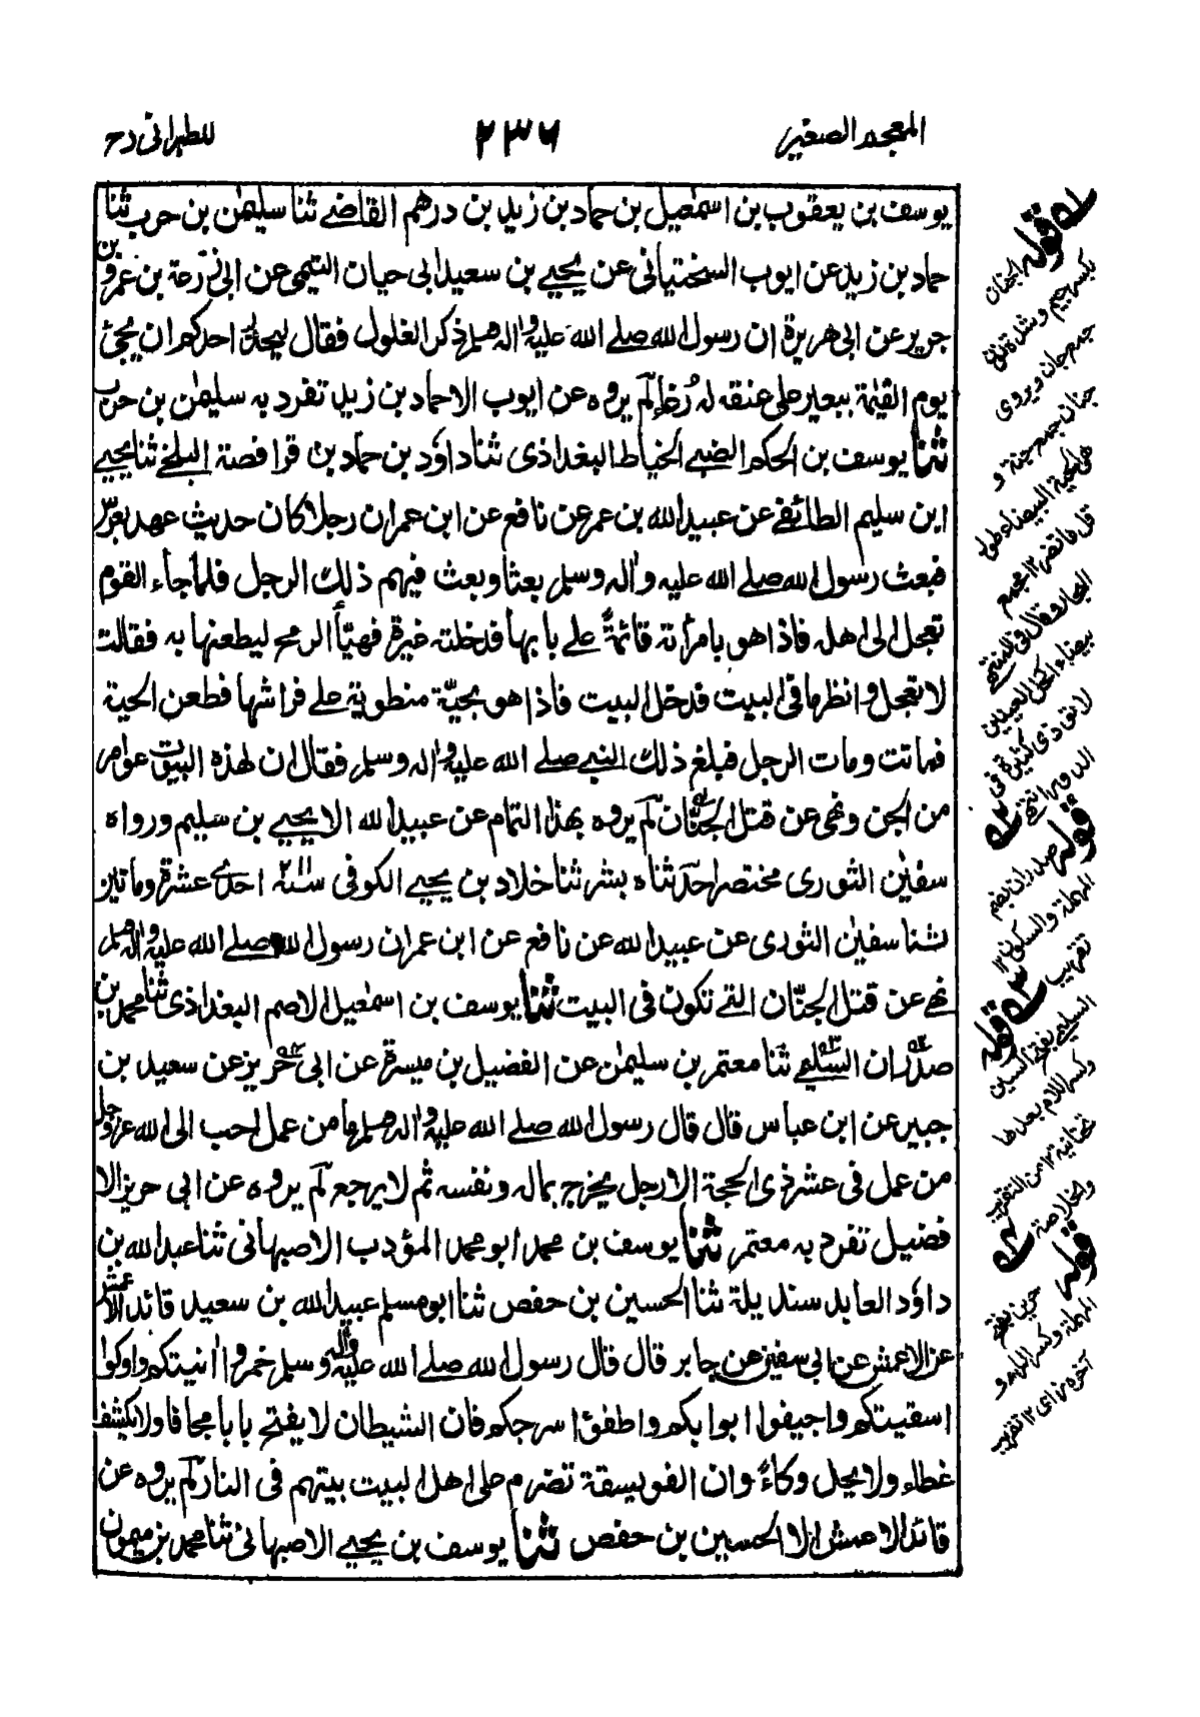 المعجم الصغير
٢٣٦
للطبرانی رح
يوسف بن يعقوب بن اسمٰعيل بن حماد بن زيد بن درهم القاضے ثنا سليمٰن بن حرب ثنا
حماد بن زيد عن ايوب السختيانی عن يحيے بن سعيد ابی حيان التيمی عن ابی زرعة بن عمرو بن
جرير عن ابی هريرة ان رسول الله صلے الله عليه واٰله وسلم ذكر الغلول فقال ليحذر احدكم ان يجئ
يوم القيٰمة ببعير علی عنقه له رُغاءٌ لم يروه عن ايوب الا حماد بن زيد تفرد به سليمٰن بن حرب
ثنا يوسف بن الحكم الضبے الخياط البغداذی ثنا داوٗد بن حماد بن فرافصة البلخے ثنا يحيے
ابن سليم الطائفے عن عبيد الله بن عمر عن نافع عن ابن عمر ان رجلا كان حديث عهد بعرس
فبعث رسول الله صلے الله عليه واٰله وسلم بعثا وبعث فيهم ذلك الرجل فلما جاء القوم
تعجل الی اهله فاذا هو بامرأته قائمةٌ علے بابها فدخلته غيرة فهيّأ الرمح ليطعنها به فقالت
لا تعجل وانظر ما فی البيت فدخل البيت فاذا هو بحيّة منطوية علے فراشها فطعن الحية
فماتت ومات الرجل فبلغ ذلك النبے صلے الله عليه واٰله وسلم فقال ان لهذه البيوت عوامر
من الجن ونهی عن قتل الجنّان لم يروه بهذا التمام عن عبيد الله الا يحيے بن سليم ورواه
سفيٰن الثوری مختصرا حدثناه بشر ثنا خلاد بن يحيے الكوفی سنة ٢١١ احدے عشرة وماتين
ثنا سفيٰن الثوری عن عبيد الله عن نافع عن ابن عمر ان رسول الله صلے الله عليه واٰله وسلم
نهے عن قتل الجنّان التے تكون فی البيت ثنا يوسف بن اسمٰعيل الاصم البغداذی ثنا محمد بن
صدران السليمے ثنا معتمر بن سليمٰن عن الفضيل بن ميسرة عن ابی حريز عن سعيد بن
جبير عن ابن عباس قال قال رسول الله صلے الله عليه واٰله وسلم ما من عمل احب الی الله عز وجل
من عمل فی عشر ذی الحجة الا رجل يخرج بماله ونفسه ثم لا يرجع لم يروه عن ابی حريز الا
فضيل تفرد به معتمر ثنا يوسف بن محمد ابو محمد المؤدب الاصبهانی ثنا عبد الله بن
داوٗد العابد سنديلة ثنا الحسين بن حفص ثنا ابو مسلم عبيد الله بن سعيد قائد الاعمش
عن الاعمش عن ابی سفيٰن عن جابر قال قال رسول الله صلے الله عليه واٰله وسلم خمروا اٰنيتكم واوكوا
اسقيتكم واجيفوا ابوابكم واطفؤا سرجكم فان الشيطان لا يفتح بابا مجافا ولا يكشف
غطاء ولا يحل وكاءً وان الفويسقة تضرم علی اهل البيت بيتهم فی النار لم يروه عن
قائد الاعمش الا الحسين بن حفص ثنا يوسف بن يحيے الاصبهانی ثنا محمد بن ميمون
له قوله
الجنان
بكسر جيم وشدة نون
جمع جان ويروی
جنان جمع جنة و
هی الحية البيضاء
جمع
البحار
قوله صدران بضم
المهملة والسكون ١٢
تقريب
قوله
السليمے بفتح السين
وكسر اللام بعدها
تحتانية ١٢ من التقريب
والخلاصة
قوله
حريز بفتح
المهملة وكسر الراء و
آخره زای ١٢ تقريب